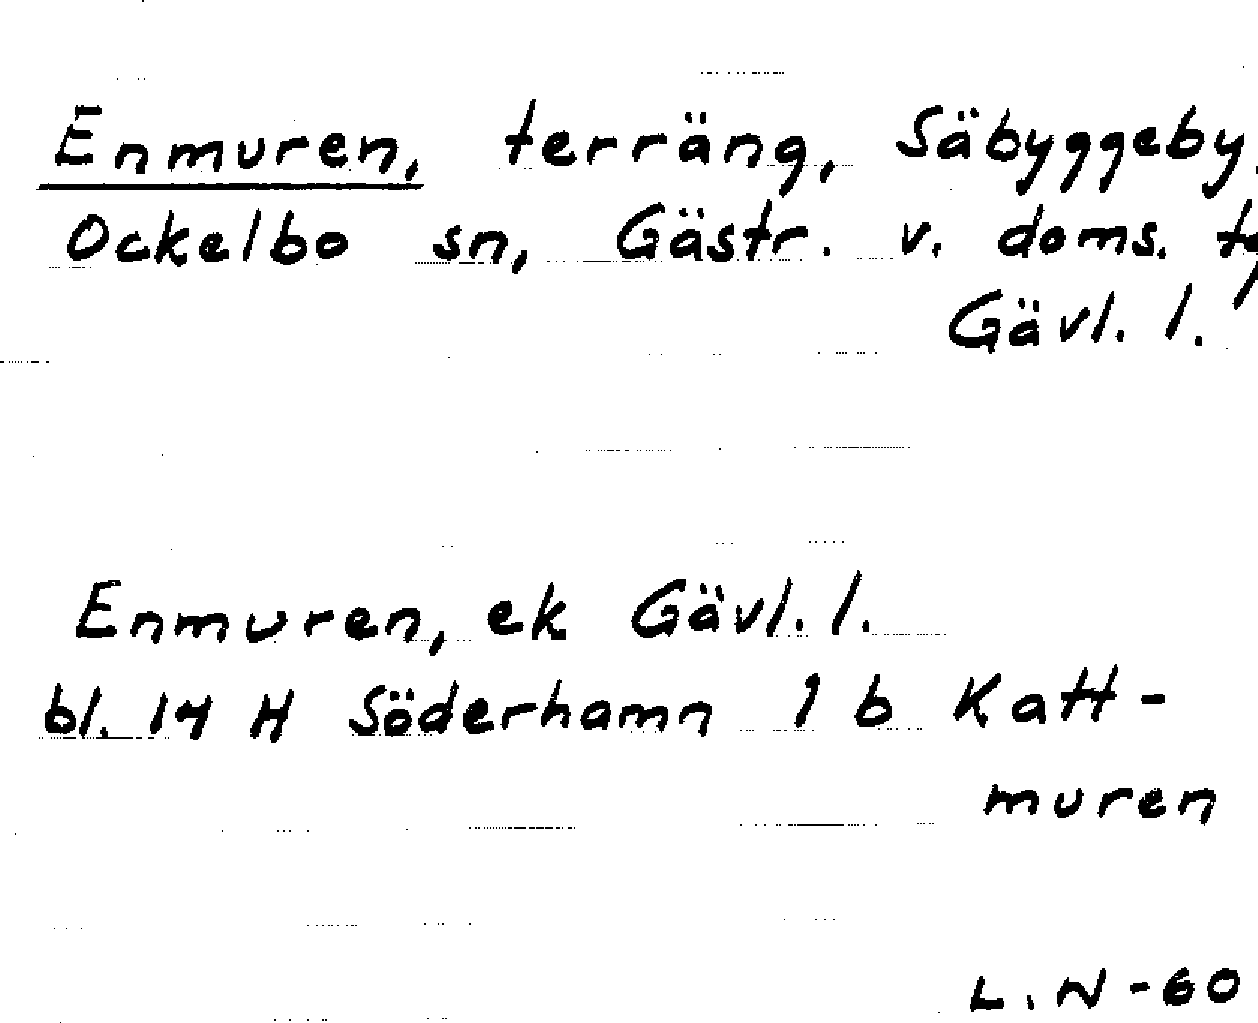 Enmuren, terräng, Säbyggeby,
Ockelbo sn, Gästr. v. doms.
Gävl. l.
Enmuren, ek Gävl. l.
bl. 14 H Söderhamn 1 b Katt-
muren
L.N-60